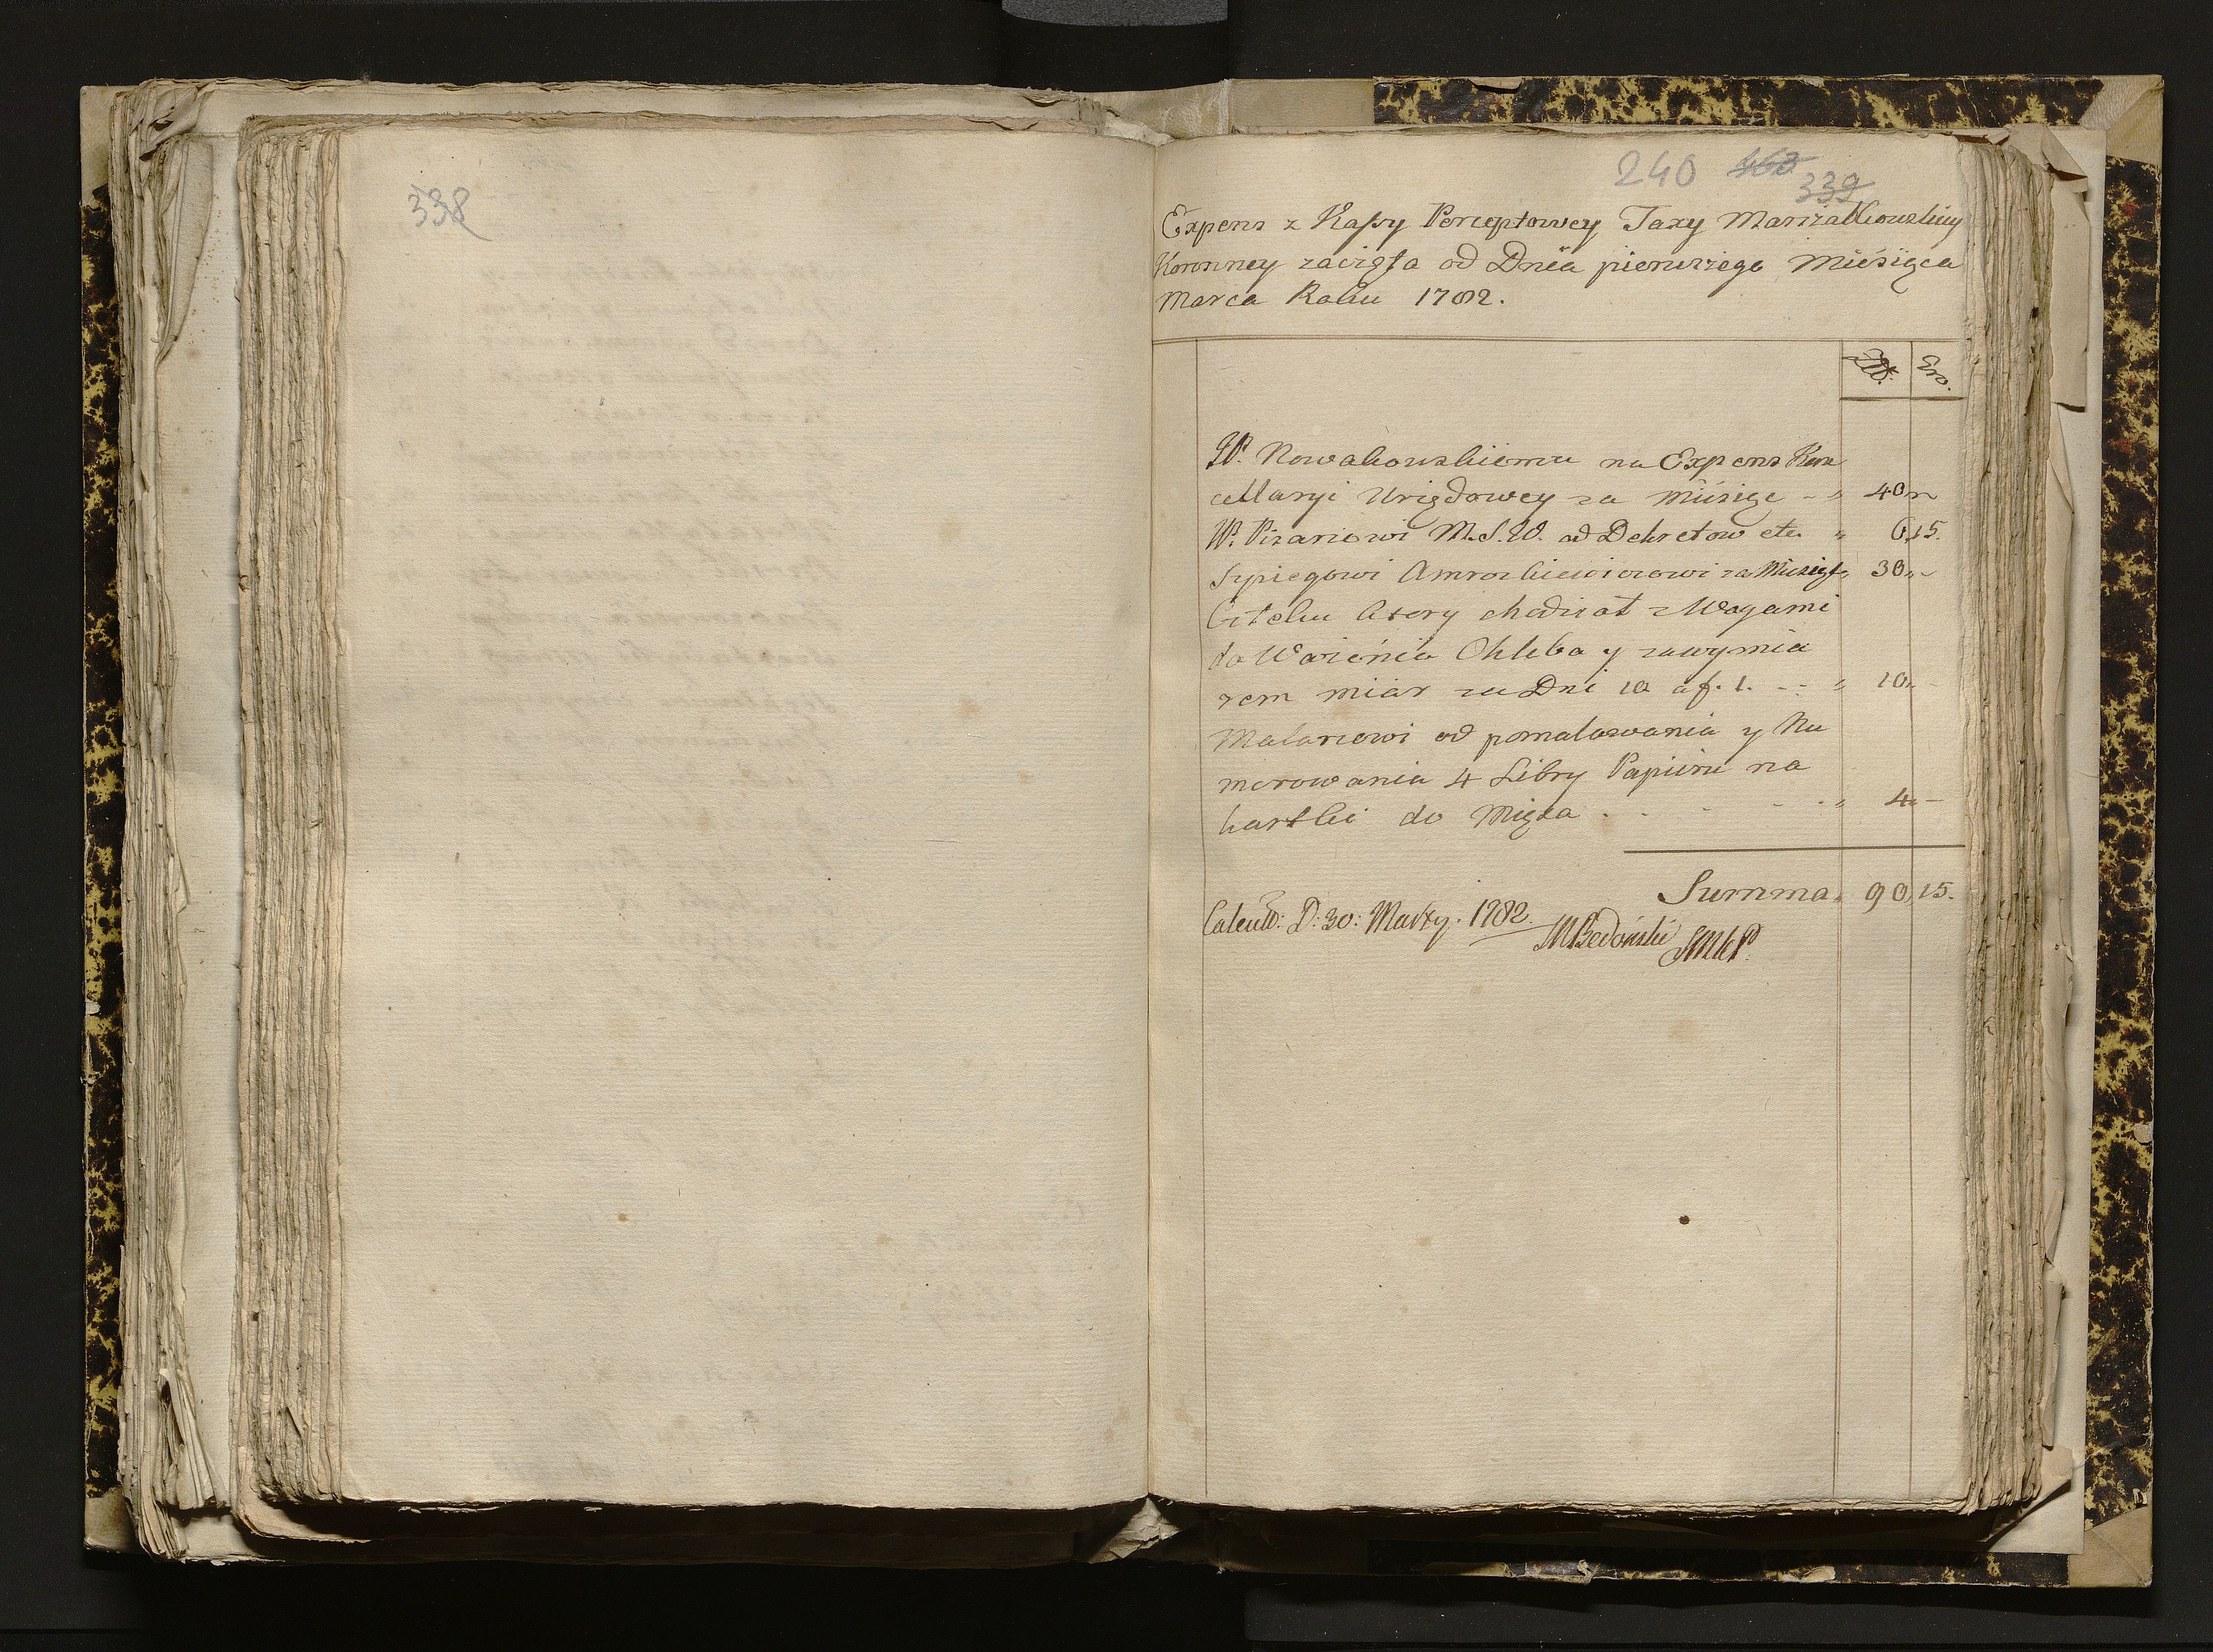 338
240 463 339
Expens z Kassy Perceptowey Taxy Marszałkowskiey
Koronney zaczęta od Dnia pierwszego Miesiąca
Marca Roku 1782.
Zł. Gro.
W. Nowakowskiemu na Expens Kan
cellaryi Urzędowey za Miesiąc - „ 40 „ -
W. Pisarzowi M.S.W. od Dekretow etc. „ 6 „ 15.
Szpiegowi Amroziewiczowi za Miesiąc „ 30 „ -
Ceteku ktory chodził z Wagami
do Ważenia Chleba y zawymia
rem miar za Dni 10 a f. 1. - - „ 10 „ -
Malarzowi od pomalowania y Nu
merowania 4 Libry Papieru na
kartki do Mięsa . . - - - „ 4 „ -
Summa „ 90 „ 15.
Calcul: D: 30: Marty. 1782.
MBedoński SMKP.